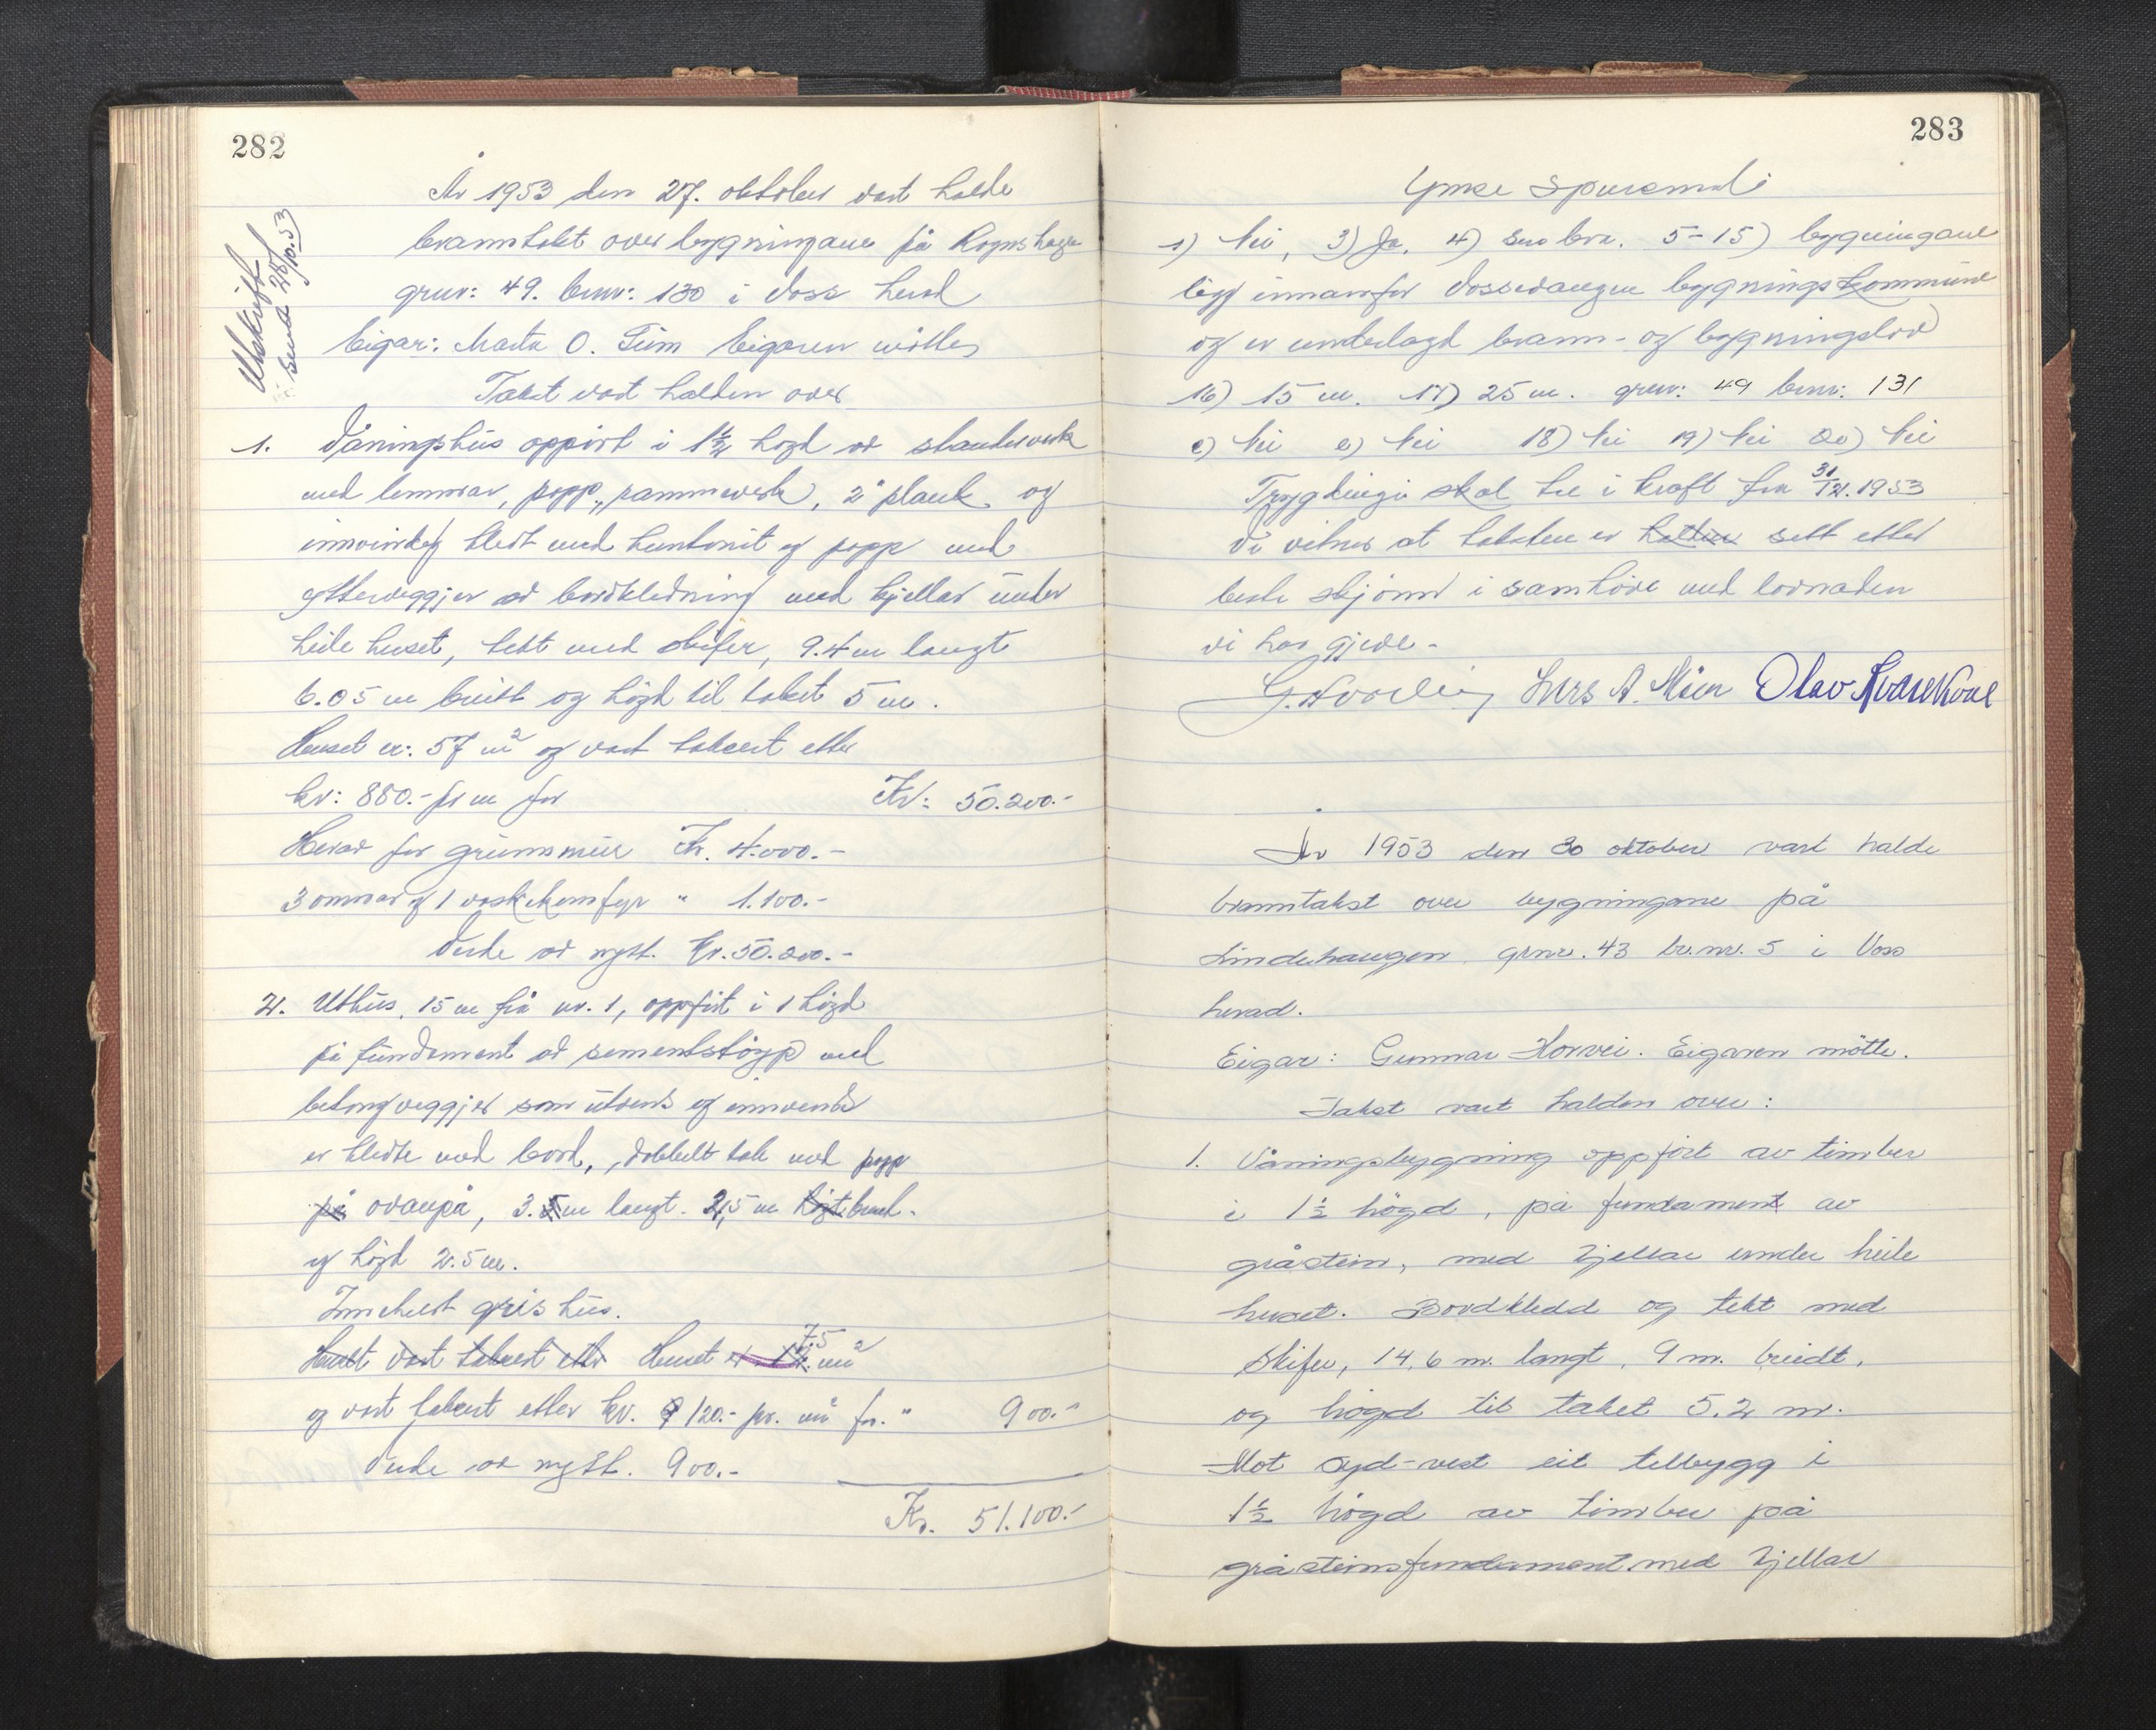 282
Utskrift
send 28/10.53
År 1953 den 27. oktober vart halde
branntakst over bygningane på Rognshage
grnr: 49. brnr: 130 i Voss herad
Eigar: Marta O. Finn Eigaren møtte
Takst vart halden over
1. Våningshus oppført i 1½ høgd av standerverk
med papp, rammeverk, 2" plank og
innvindig kledt med huntonit og papp med
ytterveggjer av bordkledning med kjellar under
heile huset, tekt med skifer, 9.4 m langt
6.05 m breitt og høgd til taket 5 m.
Huset er: 57 m² og vart taksert etter
kr: 880.- pr m for Kr: 50.200.-
Herav for grunnmur Kr. 4.000.-
3 omnar og 1 vaskekomfyr " 1.100.-
Verde av nytt. Kr. 50.200.-
2. Uthus, 15 m frå nr. 1, oppført i 1 høgd
på fundament av sementstøyp med
betongveggjer som utvends og innvends
er kledte med bord, dobbelt tak med papp
på ovanpå, 3. m langt. 2,5 m høgt breid.
og høgd 2.5 m.
Inneheld grishus.
Huset vart taksert etter Huset er 7.5 m²
og vart taksert etter kr. 120.- pr. m² for. " 900.-
Verde av nytt. 900.-
Kr. 51.100.-
283
Ymse spursmål:
1) Nei, 3) Ja, 4) bra. 5-15) bygningane
ligg innanfor Vossevangen bygningskommune
og er underlagd brann- og bygningslov
16) 15 m. 17) 25 m. grnr: 49 brnr: 131
c) Nei e) Nei 18) Nei 19) Nei 20) Nei
Trygdingi skal tre i kraft frå 31/12.1953
Vi vitner at taksten er halden sett etter
beste skjønn i samhøve med lovnaden
vi har gjeve.
Lars A. Møen Olav Kvarekval
År 1953 den 30 oktober vart halde
branntakst over bygningane på
Lindehaugen grnr. 43 br.nr. 5 i Voss
herad.
Eigar: Gunnar Horvei. Eigaren møtte.
Takst vart halden over:
1. Våningsbygning oppført av timber
i 1½ høgd, på fundament av
gråstein, med kjellar under heile
huset. Bordkledd og tekt med
skifer, 14,6 m. langt, 9 m. breidt,
og høgd til taket 5.2 m.
Mot syd-vest eit tilbygg i
1½ høgd av timber på
gråsteinsfundament med kjellar